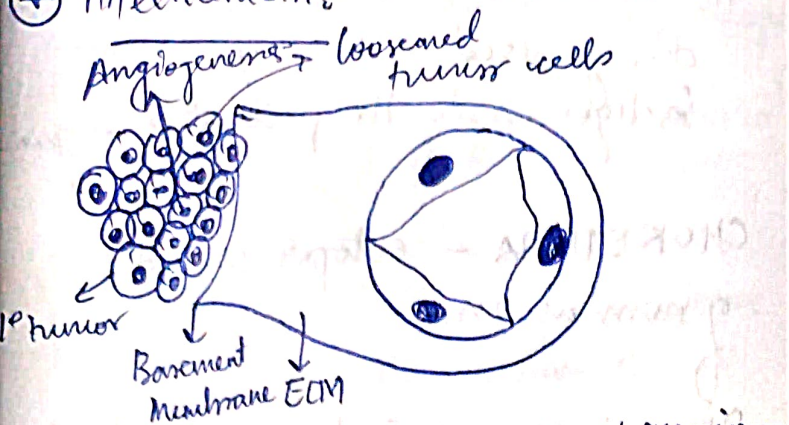 Angiogenesis
loosened
tumor cells
1° tumor
Basement
Membrane
ECM